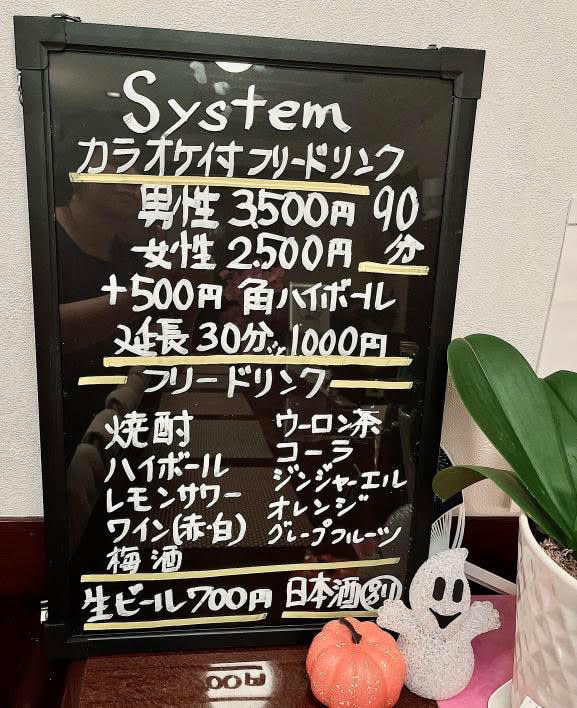 System
カラオケ付フリードリンク
男性 3,500円 90
女性 2,500円 分
+500円 角ハイボール
延長 30分 1000円
フリードリンク
焼酎
ハイボール
レモンサワー
ワイン(赤・白)
梅酒
ウーロン茶
コーラ
ジンジャーエル
オレンジ
グレープフルーツ
生ビール700円 日本酒